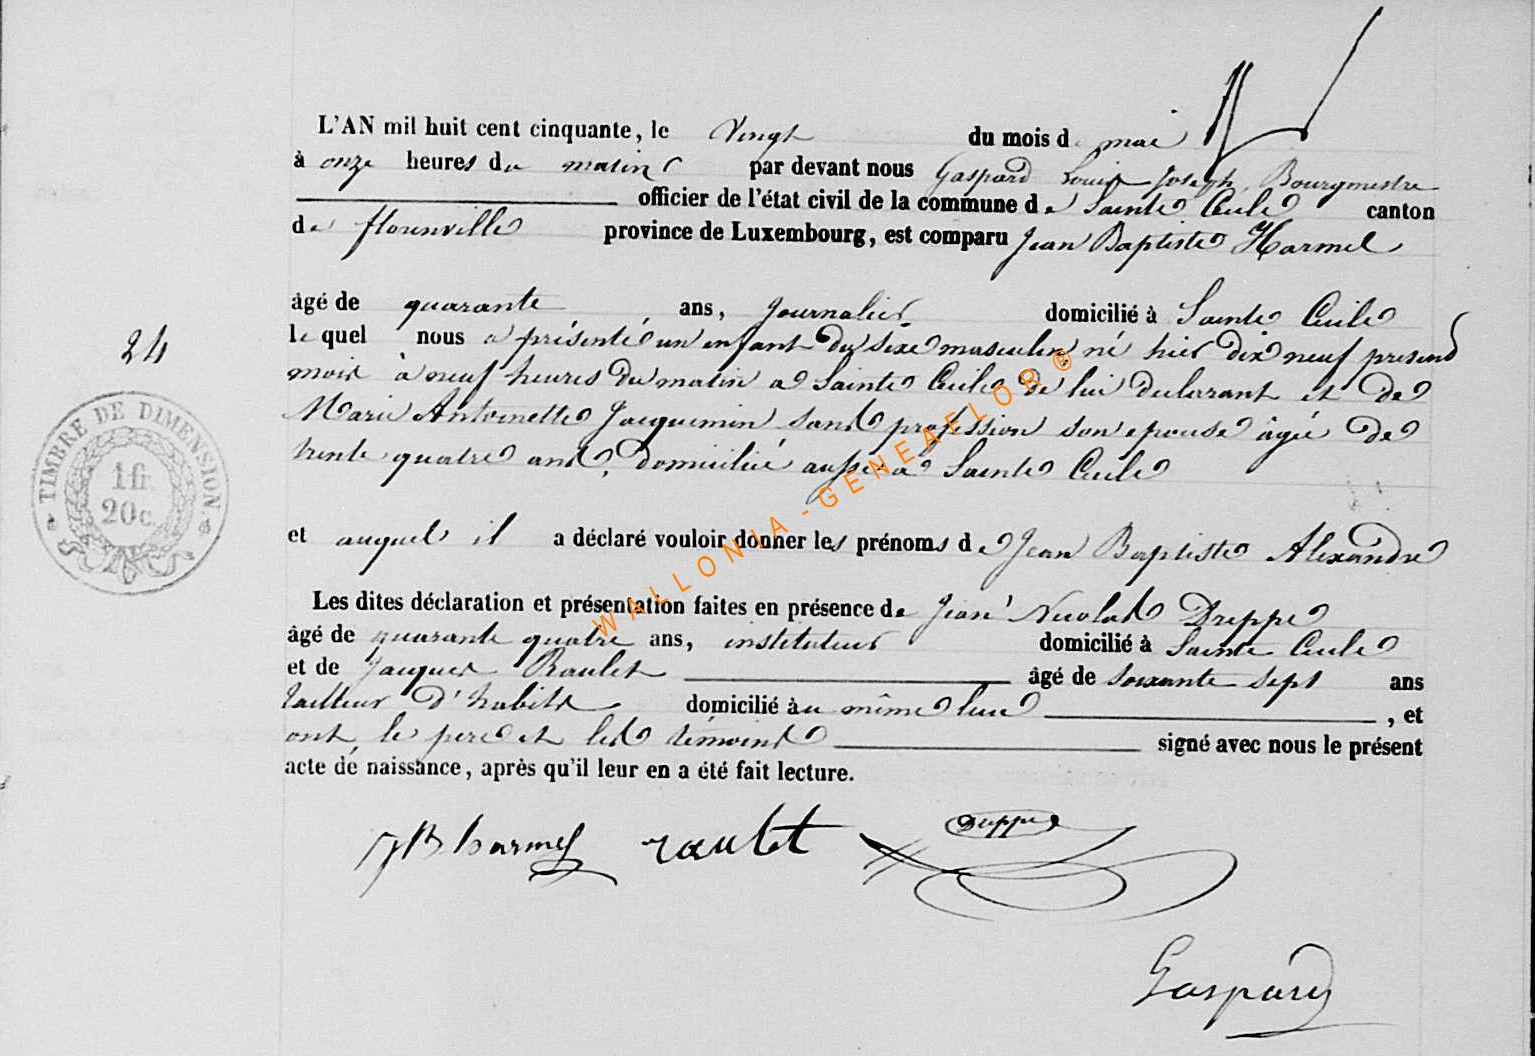 L'AN mil huit cent cinquante, le Vingt du mois de mai
à onze heures du matin par devant nous Gaspard Louis Joseph, Bourgmestre
officier de l'état civil de la commune de Sainte Cecile canton
de florenville province de Luxembourg, est comparu Jean Baptiste Harmel
âgé de quarante ans, Journalier domicilié à Sainte Cecile
le quel nous a présenté un enfant du sexe masculin né hier dix neuf present
24
mois à neuf heures du matin a Sainte Cecile de lui declarant et de
Marie Antoinette Jacquemin sans profession son epouse âgée de
trente quatre ans, domiciliée aussi à Sainte Cecile
TIMBRE DE DIMENSION.
1 fr.
20c.
et auquel il a déclaré vouloir donner les prénoms de Jean Baptiste Alexandre
Les dites déclaration et présentation faites en présence de Jean Nicolas Dreppe
âgé de quarante quatre ans, instituteur domicilié à Sainte Cecile
et de Jacques Raulet âgé de soixante sept ans
tailleur d'habits domicilié au même lieu, et
ont le pere et les témoins signé avec nous le présent
acte de naissance, après qu'il leur en a été fait lecture.
JB harmel raulet Dreppe
Gaspard
WALLONIA - GENEAFLOR ®